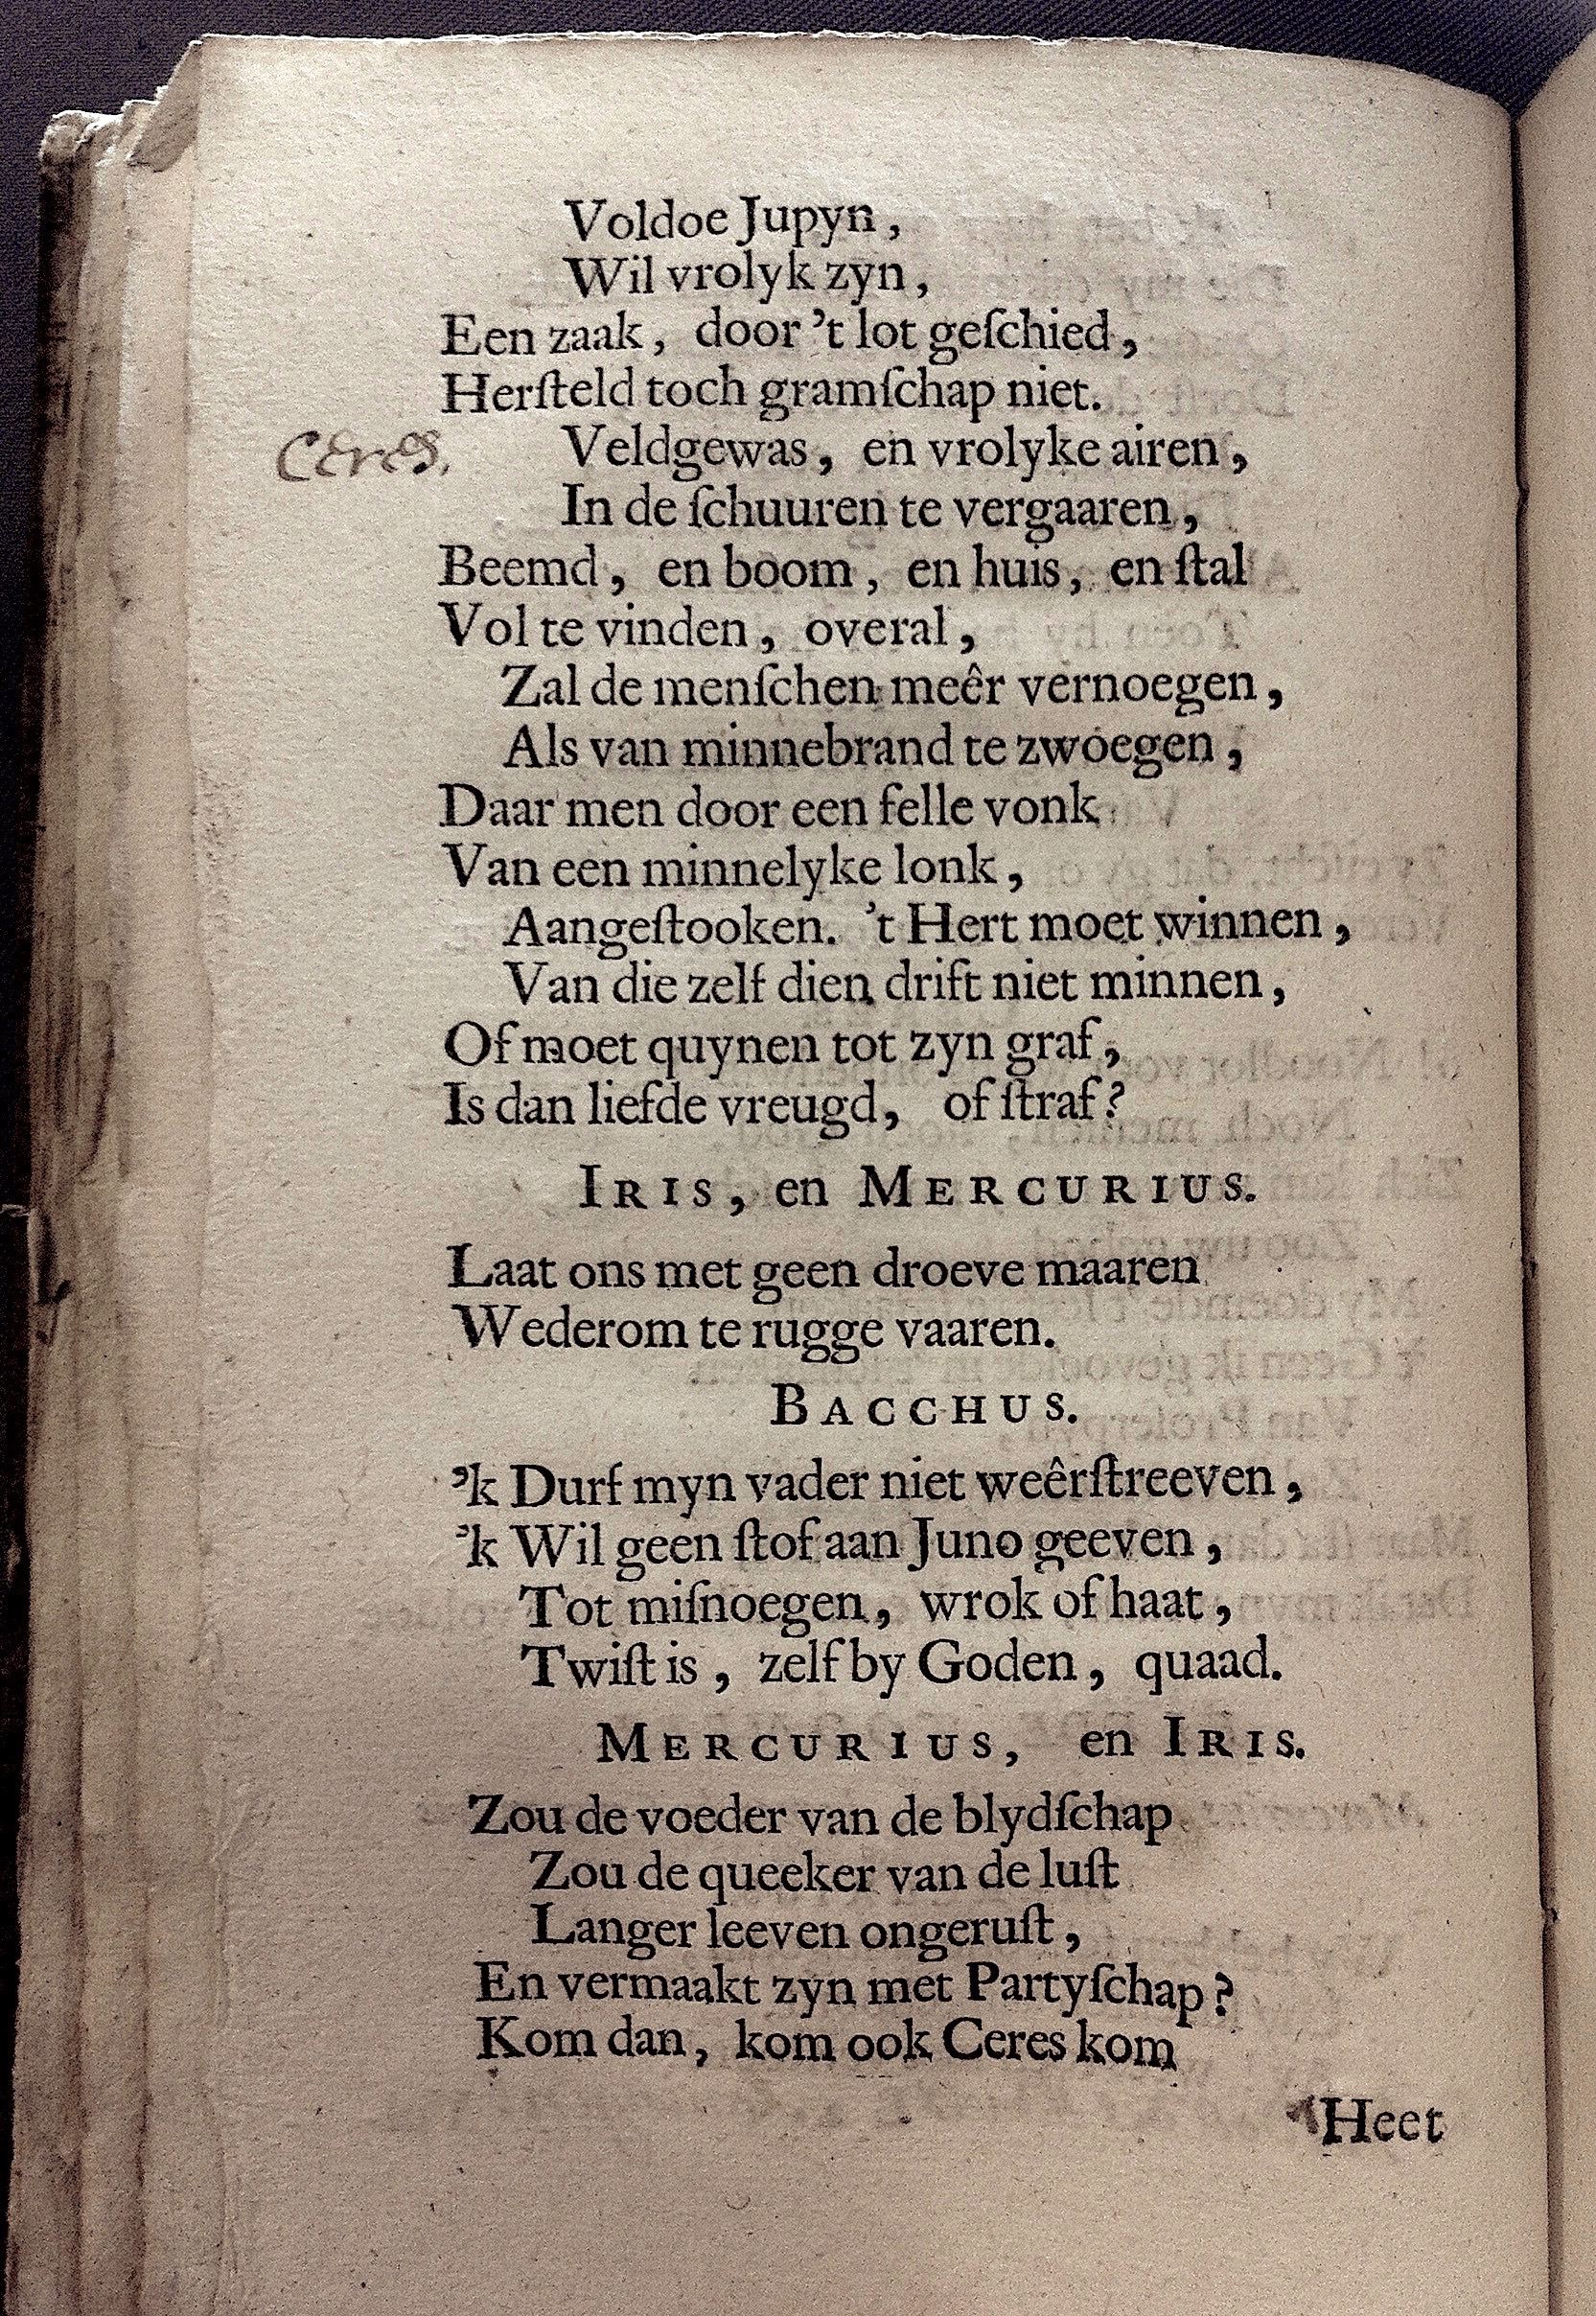 Voldoe Jupyn,
Wil vrolyk zyn,
Een zaak, door 't lot geſchied,
Herſteld toch gramſchap niet.
Ceres. Veldgewas, en vrolyke airen,
In de ſchuuren te vergaaren,
Beemd, en boom, en huis, en ſtal
Vol te vinden, overal,
Zal de menſchen meêr vernoegen,
Als van minnebrand te zwoegen,
Daar men door een felle vonk
Van een minnelyke lonk,
Aangeſtooken. 't Hert moet winnen,
Van die zelf dien drift niet minnen,
Of moet quynen tot zyn graf,
Is dan liefde vreugd, of ſtraf?
IRIS, en MERCURIUS.
Laat ons met geen droeve maaren
Wederom te rugge vaaren.
BACCHUS.
'k Durf myn vader niet weêrſtreeven,
'k Wil geen ſtof aan Juno geeven,
Tot miſnoegen, wrok of haat,
Twiſt is, zelf by Goden, quaad.
MERCURIUS, en IRIS.
Zou de voeder van de blydſchap
Zou de queeker van de luſt
Langer leeven ongeruſt,
En vermaakt zyn met Partyſchap?
Kom dan, kom ook Ceres kom
Heet